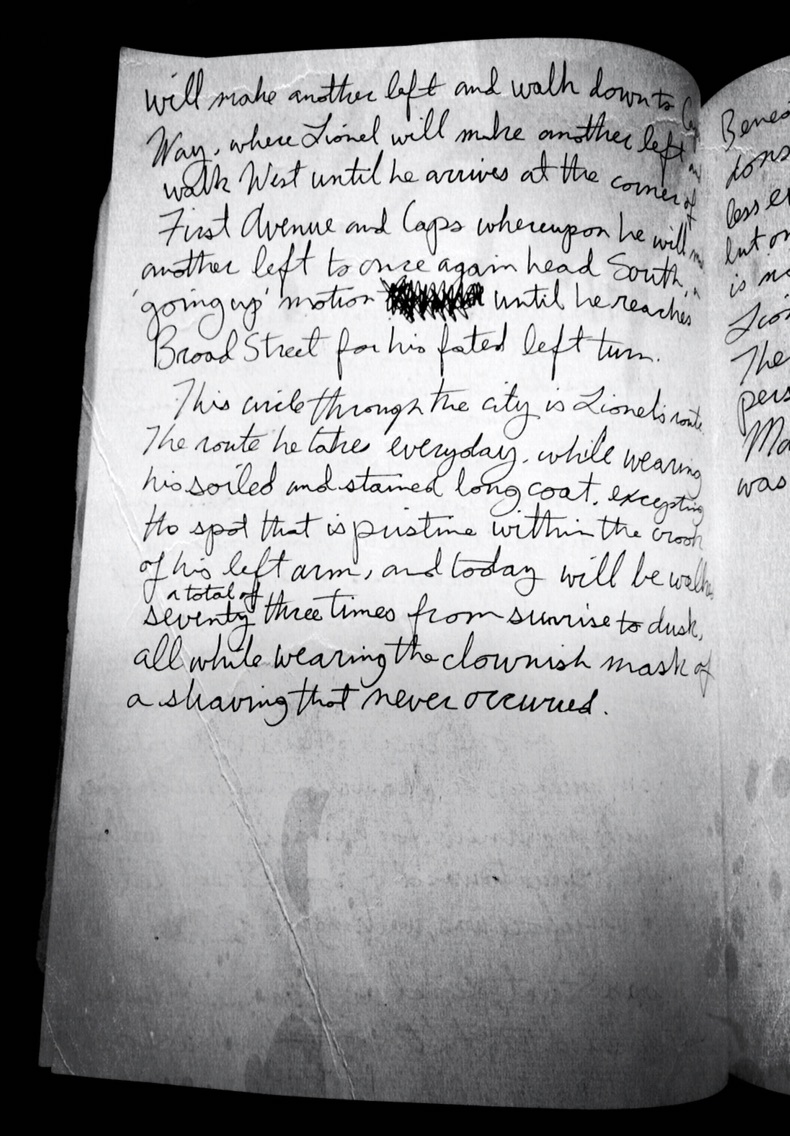 will make another left and walk down to
Way, where Lionel will make another left
walk West until he arrives at the corner of
First Avenue and Caps whereupon he will
another left to once again head South,
'going up' motion until he reaches
Broad Street for his fated left turn.
This circle through the city is Lionel's route.
The route he takes everyday, while wearing
his soiled and stained long coat, excepting
the spot that is pristine within the crook
of his left arm, and today will be walked
a total of
seventy three times from sunrise to dusk,
all while wearing the clownish mask of
a shaving that never occurred.
less
but
is
The
was